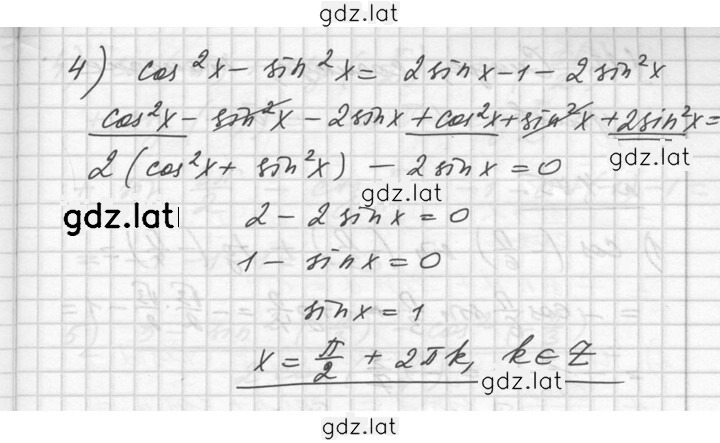 gdz.lat
4) cos²x − sin²x = 2sinx − 1 − 2sin²x
cos²x − sin²x − 2sinx + cos²x + sin²x + 2sin²x =
gdz.lat
2(cos²x + sin²x) − 2sinx = 0
gdz.lat
gdz.lat
2 − 2sinx = 0
1 − sinx = 0
sinx = 1
x = π/2 + 2πk, k ∈ Z
gdz.lat
gdz.lat